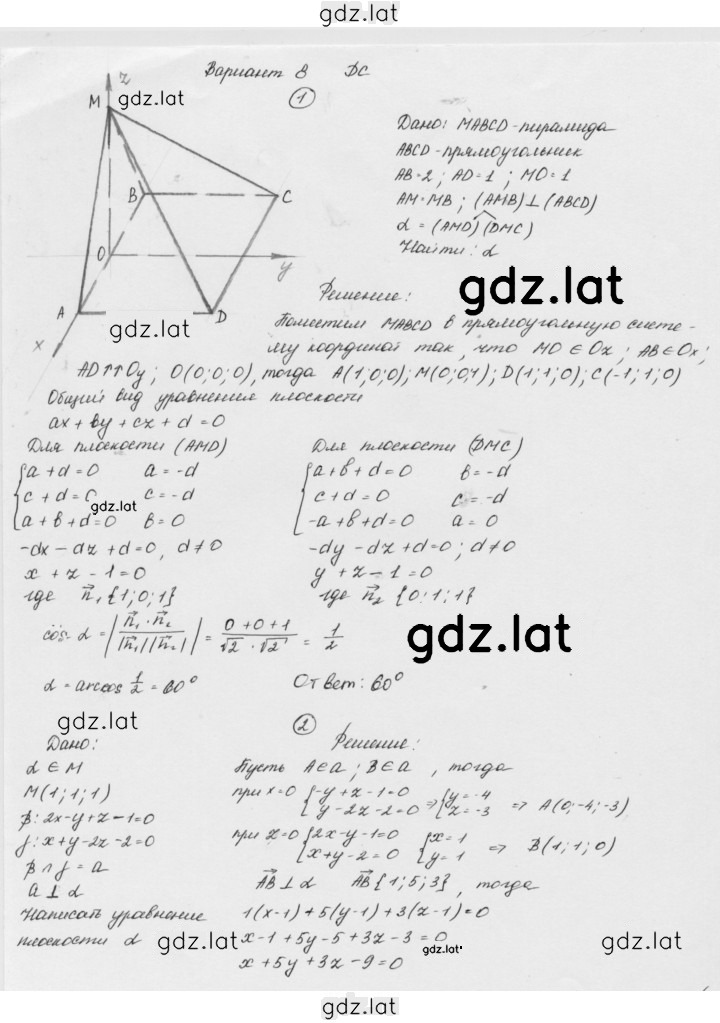 gdz.lat
Вариант 8 ДС
1
z
M
gdz.lat
B
C
O
y
A
D
x
gdz.lat
Дано: MABCD - пирамида
ABCD - прямоугольник
AB=2; AD=1; MO=1
AM=MB; (AMB)⊥(ABCD)
α = (AMD)^(DMC)
Найти: α
gdz.lat
Решение:
Поместим MABCD в прямоугольную систе-
му координат так, что MO∈Oz; AB∈Ox;
AD↑↑Oy; O(0;0;0), тогда A(1;0;0); M(0;0;1); D(1;1;0); C(-1;1;0)
Общий вид уравнения плоскости
ax + by + cz + d = 0
Для плоскости (AMD)
{a + d = 0 a = -d
c + d = 0 c = -d
gdz.lat
a + b + d = 0 b = 0
-dx - dz + d = 0, d ≠ 0
x + z - 1 = 0
где n⃗₁{1;0;1}
Для плоскости (DMC)
{a + b + d = 0 b = -d
c + d = 0 c = -d
-a + b + d = 0 a = 0
-dy - dz + d = 0; d ≠ 0
y + z - 1 = 0
где n⃗₂ {0;1;1}
cos α = |n⃗₁·n⃗₂ / |n⃗₁||n⃗₂|| = (0+0+1)/(√2·√2) = 1/2
gdz.lat
α = arccos 1/2 = 60° Ответ: 60°
gdz.lat
2
Дано:
α ∈ M
M(1;1;1)
β: 2x-y+z-1=0
γ: x+y-2z-2=0
β ∩ γ = a
a ⊥ α
Написать уравнение
плоскости α
Решение:
Пусть A∈a; B∈a, тогда
при x=0 {-y+z-1=0
y-2z-2=0 ⇒ {y=-4
z=-3 ⇒ A(0;-4;-3)
при z=0 {2x-y-1=0
x+y-2=0 {x=1
y=1 ⇒ B(1;1;0)
AB⃗ ⊥ α AB⃗{1;5;3}, тогда
1(x-1)+5(y-1)+3(z-1)=0
x-1+5y-5+3z-3=0
x+5y+3z-9=0
gdz.lat
gdz.lat
gdz.lat
gdz.lat